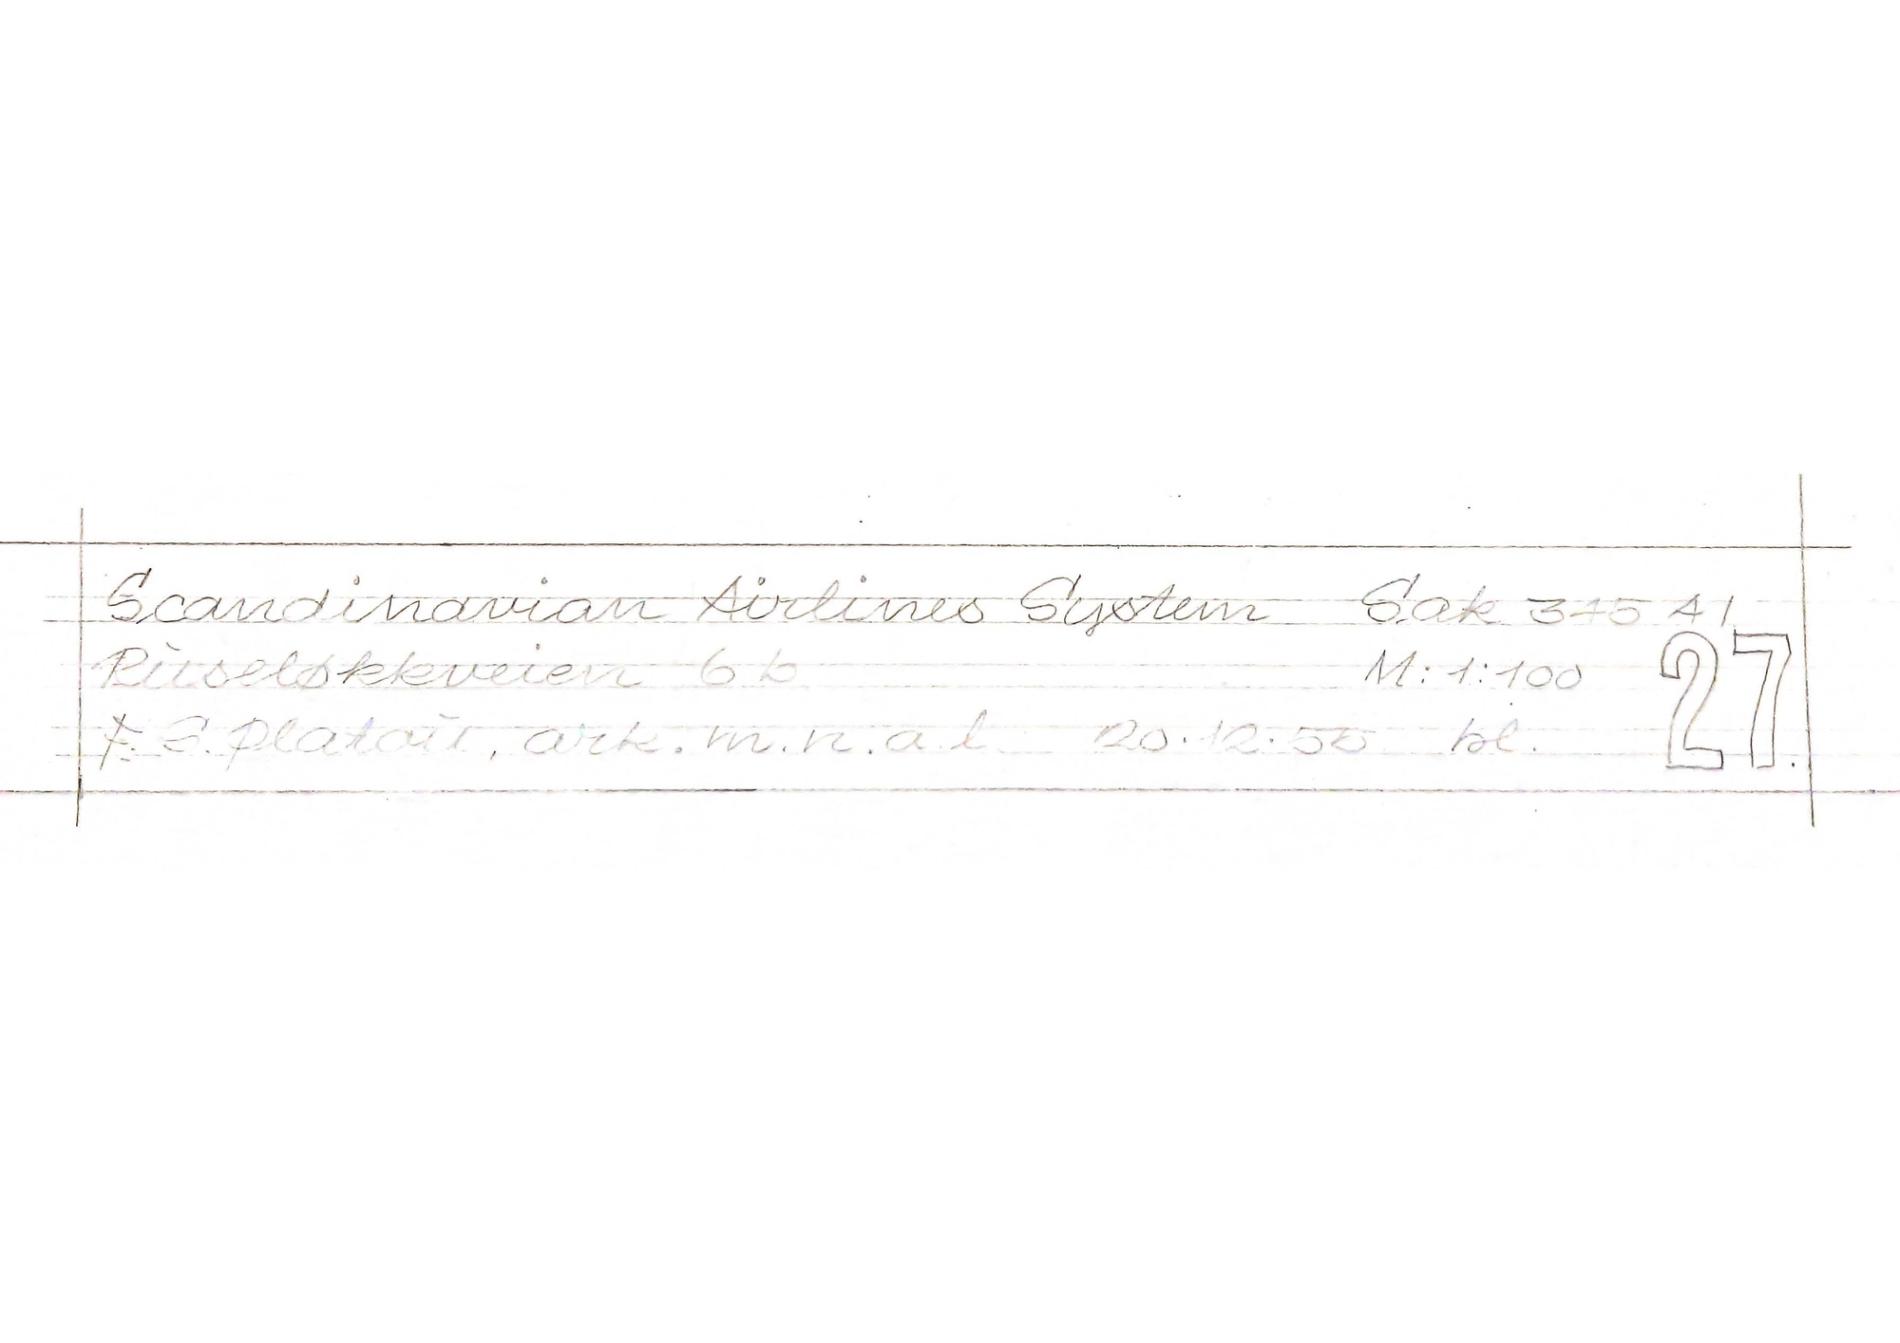 Scandinavian Airlines System Sak 375 A1
Ruseløkkveien 6 b M: 1:100
F. S. Platou, ark. m.n.a.l 20.12.50 bl.
27.